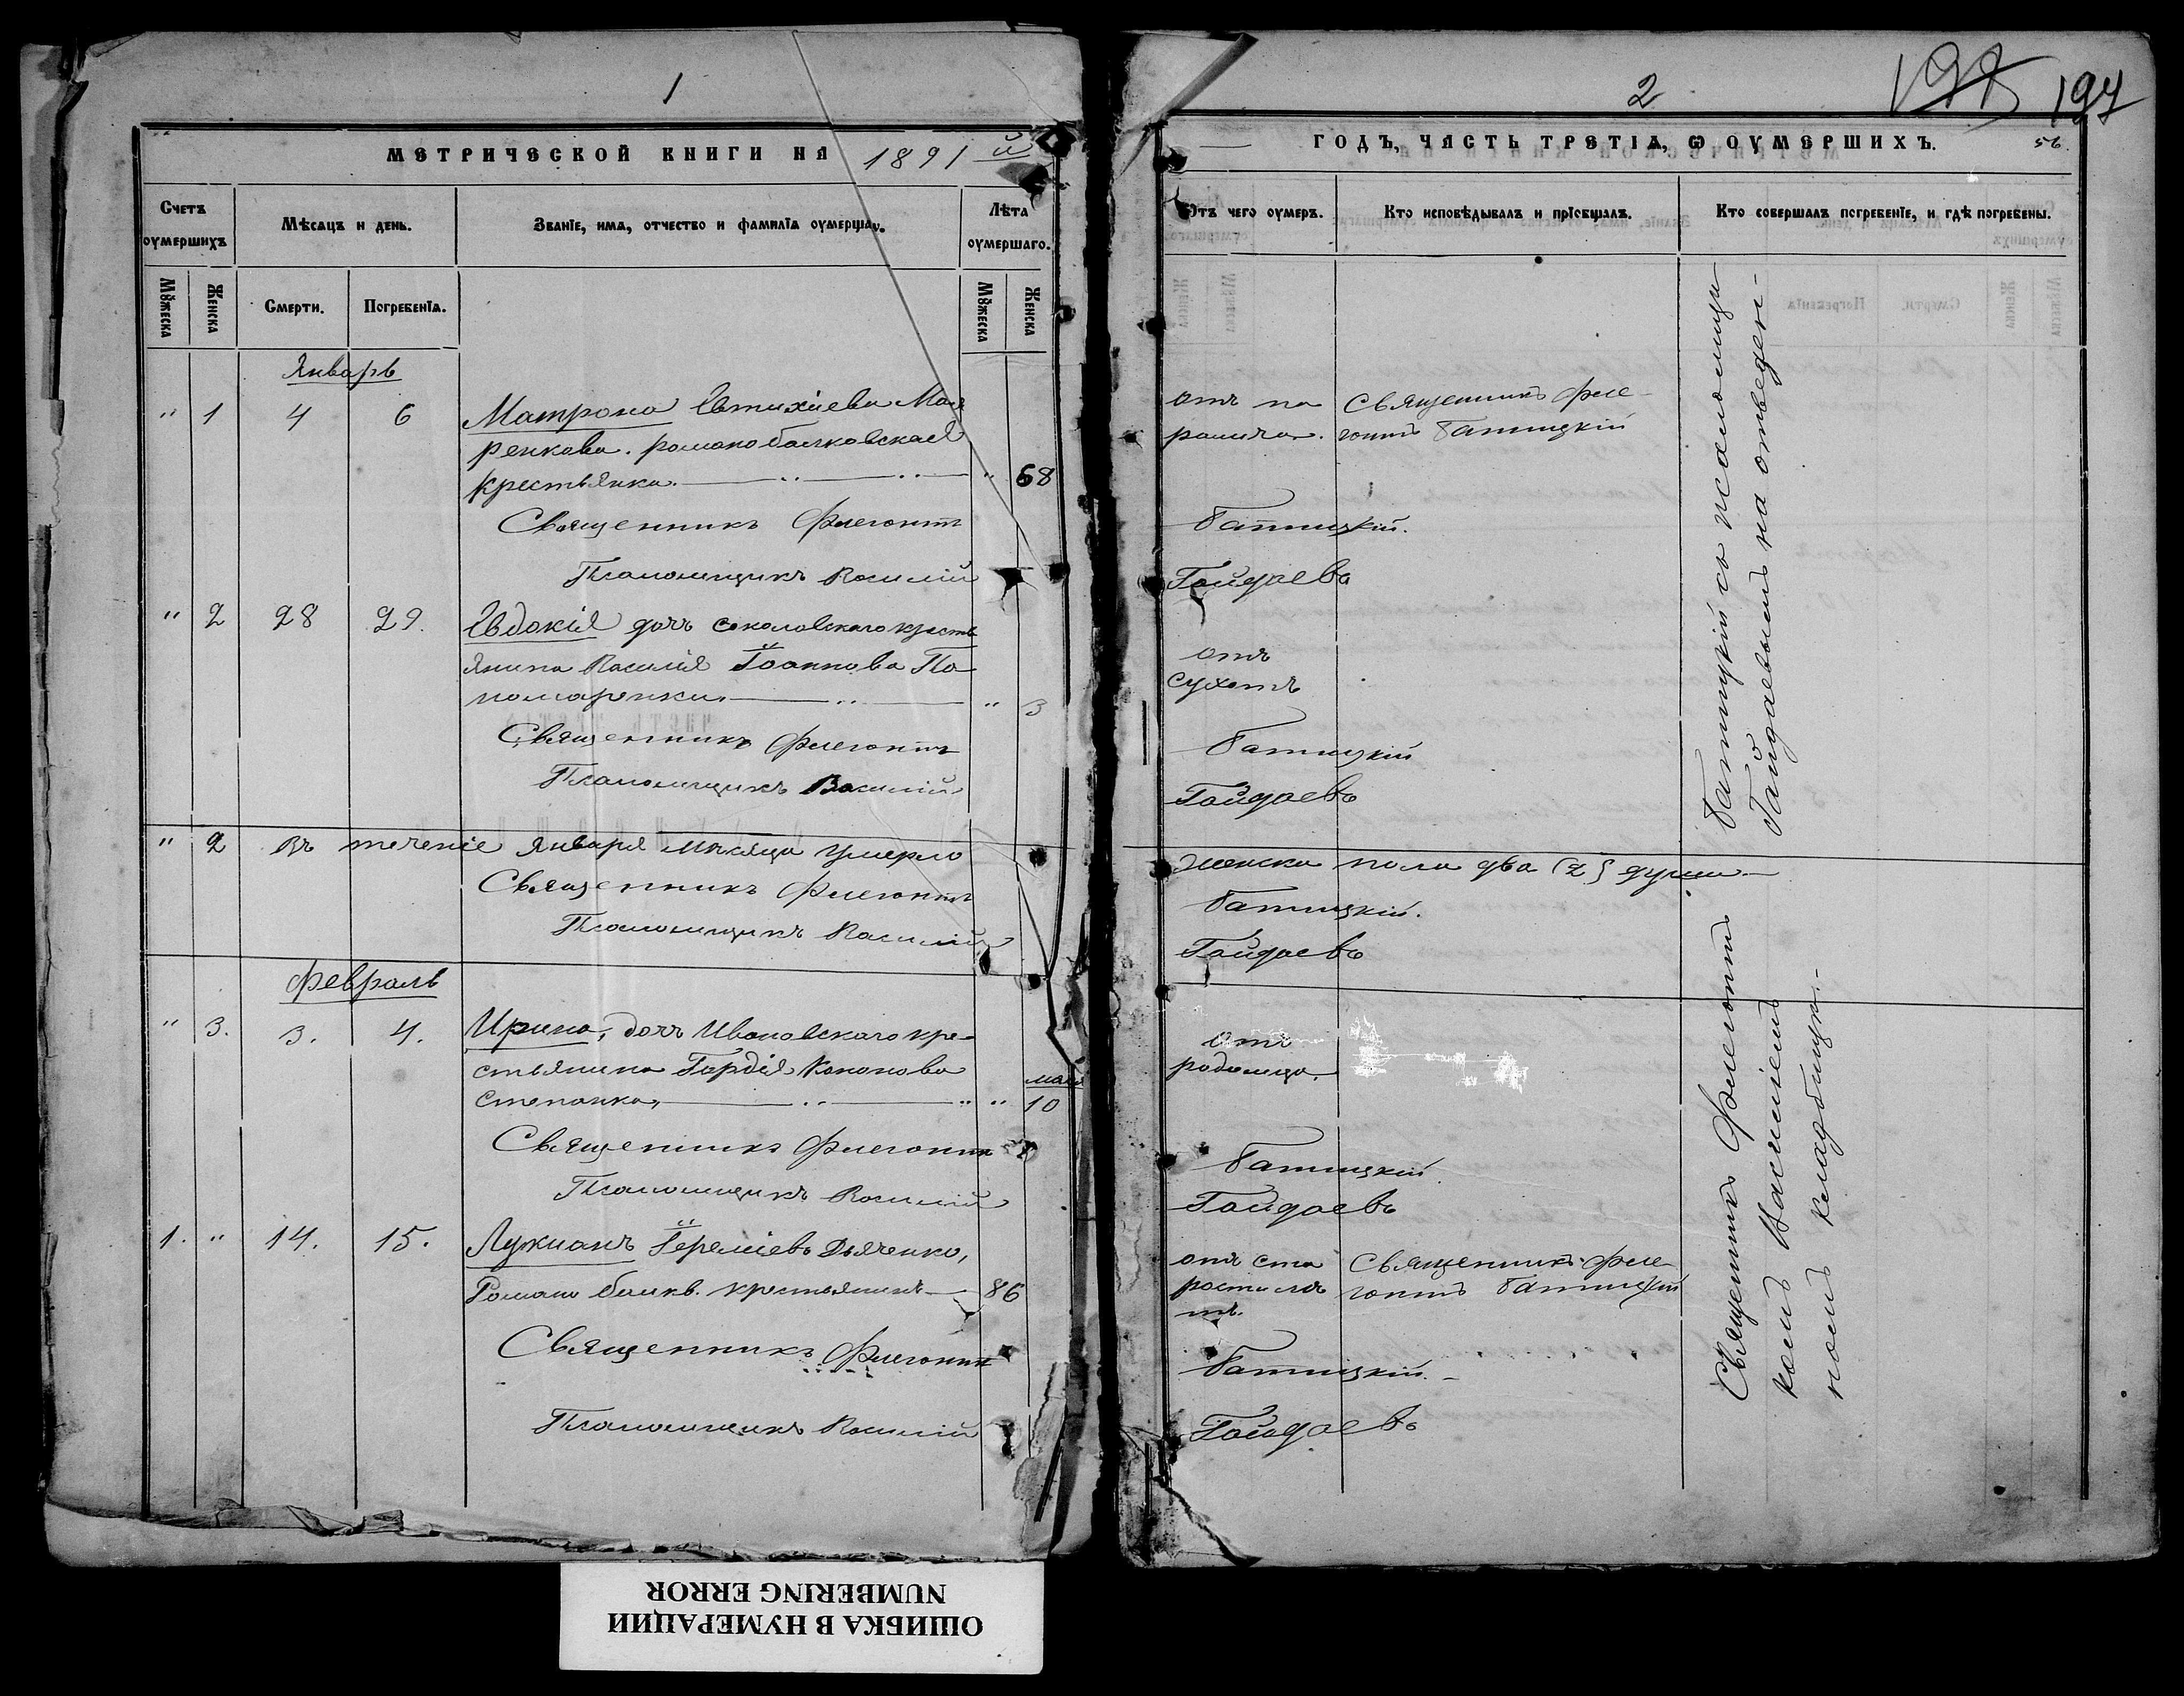 1
МЕТРИЧЕСКОЙ КНИГИ НА 1891 й
Счетъ оумершихъ
Мѣсяцъ и день.
Званіе, имя, отчество и фамилія оумершаго.
Лѣта оумершаго.
Мужеска
Женска
Смерти.
Погребенія.
Мужеска
Женска
Январь
" 1 4 6 Матрона Евтихіева Ма
ренкова. романобалковская
крестьянка. " 68
Священникъ Флегонтъ
Псаломщикъ Василій
" 2 28 29. Евдокія дочь соколовскаго кресть
янина Василія Іоаннова По
номаренки. " 3
Священникъ Флегонтъ
Псаломщикъ Василій
" 2 Въ теченіе Января мѣсяца умерло
Священникъ Флегонтъ
Псаломщикъ Василій
Февраль
" 3. 3. 4. Ирина, дочь Ивановскаго кре-
стьянина Гордія Кононова
Степанка, " " 10
Священникъ Флегонтъ
Псаломщикъ Василій
1. " 14. 15. Лукианъ Іереміевъ Дьяченко,
Романо балкв. крестьянинъ 86
Священникъ Флегонтъ
Псаломщикъ Василій
2
197
ГОДЪ, ЧАСТЬ ТРЕТІЯ, Ѡ ОУМЕРШИХЪ.
56.
Отъ чего оумеръ.
Кто исповѣдывалъ и пріобщалъ.
Кто совершалъ погребеніе, и гдѣ погребены.
отъ па Священникъ Фле-
ралича. гонтъ Батицкій
Батицкій.
Гайдаевъ
отъ
сухотъ
Батицкій
Гайдаевъ
женска пола два (2) души
Батицкій.
Гайдаевъ
отъ
родимца.
Батицкій
Гайдаевъ
отъ ста Священникъ Фле-
рости лѣ гонтъ Батицкій
тъ.
Батицкій.
Гайдаевъ
Священникъ Флегонтъ Батицкій съ псаломщи
комъ Василіемъ Гайдаевымъ на отведен-
номъ кладбищѣ.
ОШИБКА В НУМЕРАЦИИ
NUMBERING ERROR